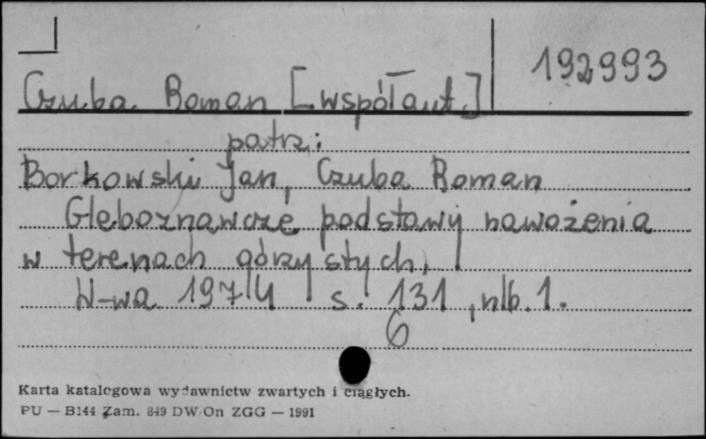 192993
Czuba Roman [współaut.]
patrz:
Borkowski Jan, Czuba Roman
Gleboznawcze podstawy nawożenia
w terenach górzystych.
W-wa 1974 s. 131, nlb. 1.
6
Karta katalogowa wydawnictw zwartych i ciągłych.
PU — B144 Zam. 849 DW/On ZGG — 1991